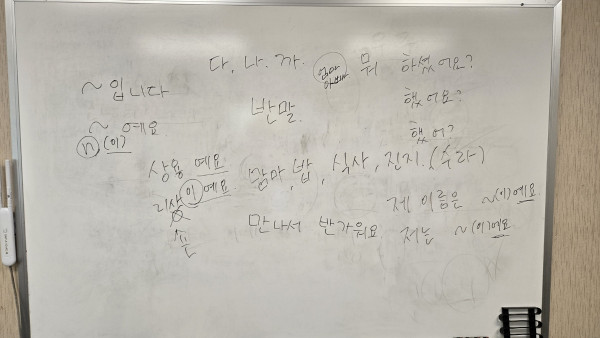 다, 나. 까. 엄마 아빠 뭐 하셨어요?
~입니다
했어요?
반말.
~ 예요
했어?
n, (이)
상용 예요
맘마, 밥, 식사, 진지. (수라)
리샤 이 예요
제 이름은 ~(이)예요
만나서 반가워요 저는 ~(이)예요